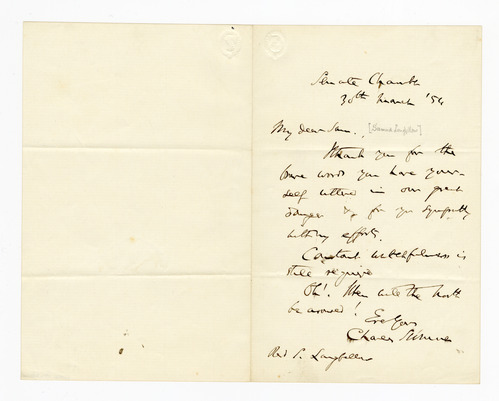 Senate Chamber
30th March '54
My dear Sam., [Samuel Longfellow]
Thank you for the
brave words you have your-
self uttered in our great
danger & for yr sympathy
with my efforts.
Constant watchfulness is
still required
Oh! When will the North
be aroused!
Ever Yours
Charles Sumner
Rev S. Longfellow